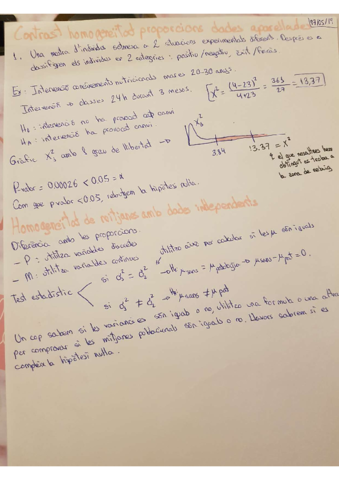 Contrast homogeneïtat proporcions dades aparellades 17/05/19
1. Una mostra d'individus sotmesa a 2 situacions experimentals diferents. Després es
classifiquen els individus en 2 categories: positiu/negatiu, èxit/fracàs.
Ex: Intervenció coneixements nutricionals mares 20-30 anys.
Intervenció → classes 24h durant 3 mesos.
H₀: intervenció no ha provocat canvi
Hₐ: intervenció ha provocat canvi
X² = (4-23)² / 4+23 = 363 / 27 = 13,37
Gràfic X²₁ amb 1 grau de llibertat →
X²
3.84 13.37 = X²
↑ el que nosaltres hem
obtingut es troba a
la zona de rebuig
P-valor = 0,00026 < 0,05 = α
Com que p-valor < 0,05, rebutgem la hipòtesi nul·la.
Homogeneïtat de mitjanes amb dades independents
Diferència amb les proporcions:
- P: utilitza variables discretes
- M: utilitza variables contínues
Test estadístic
si σ² = σ² → H₀ μ = μ → μ - μ = 0.
si σ² ≠ σ² → μ ≠ μ
Un cop sabem si les variances són iguals o no, utilitzo una fórmula o una altra
per comprovar si les mitjanes poblacionals són iguals o no. Llavors sabrem si es
compleix la hipòtesi nul·la.